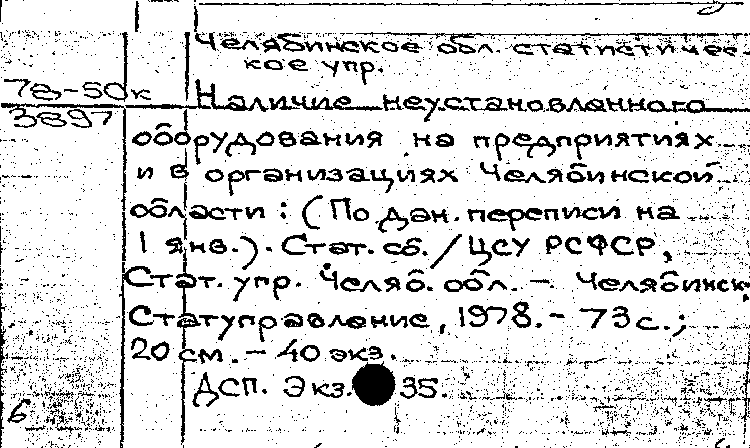 Челябинское обл. статистичес-
кое упр.
78-50к Наличие неустановленного
3897
оборудования на предприятиях
и в организациях Челябинской
области: (По дан. переписи на
1 янв.). Стат. сб. / ЦСУ РСФСР,
Стат. упр. Челяб. обл. - Челябинск,
Статуправление, 1978. - 73 с.;
20 см. - 40 экз.
ДСП. Экз. 35.
6